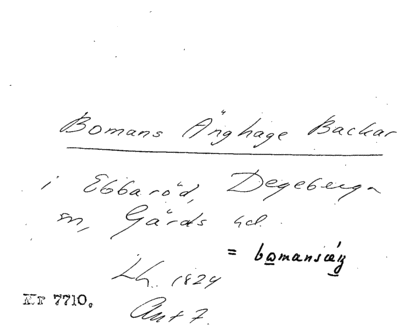 Bomans Änghage Backar
i Ebbaröd, Degeberga
sn, Gärds hd.
= bomansæŋ
Lh. 1824
Kr 7710.
Ant 7.